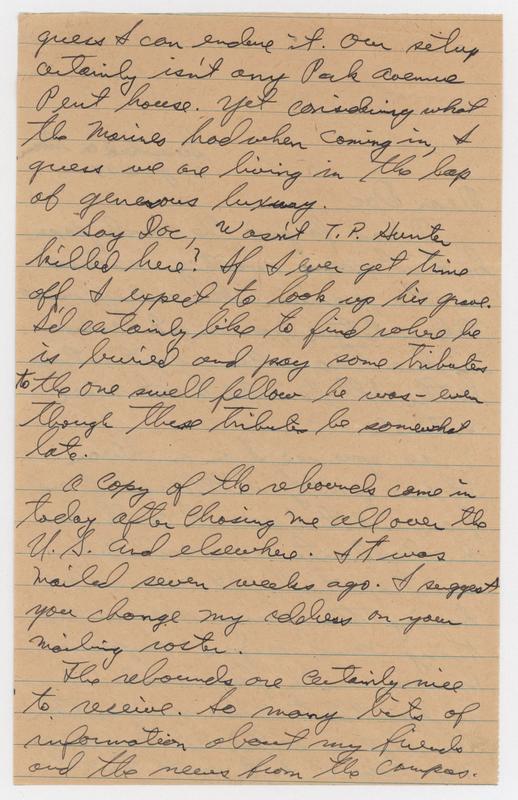 guess I can endure it. Our setup
certainly isn't any Park Avenue
Pent house. Yet considering what
the Marines had when coming in, I
guess we are living in the lap
of generous luxury.
Say Doc, Wasn't T.P. Hunter
killed here? If I ever get time
off, I expect to look up his grave.
I'd certainly like to find where he
is buried and pay some tributes
to the one swell fellow he was - even
though these tributes be somewhat
late.
A copy of the rebounds came in
today after chasing me all over the
U.S. and elsewhere. It was
mailed seven weeks ago. I suggest
you change my address on your
mailing roster.
The rebounds are certainly nice
to receive. So many bits of
information about my friends
and the news from the campus.